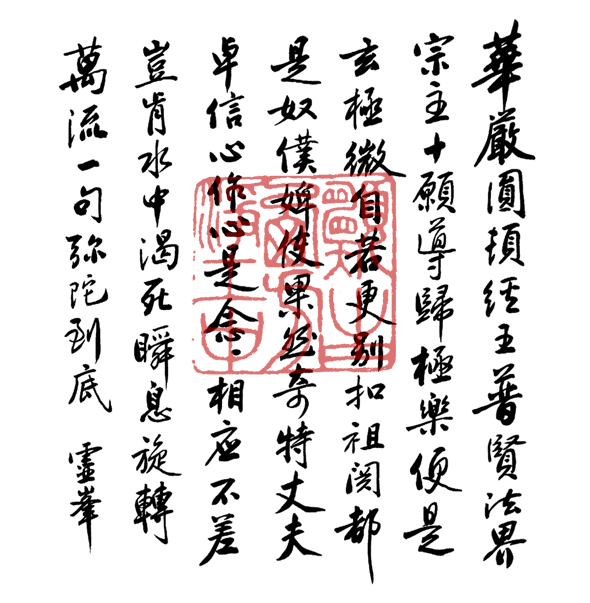 華嚴圓頓經王普賢法界
宗主十願導歸極樂便是
玄極微自若更別扣祖関都
是奴僕婢使果然奇特丈夫
卓信心佛心是念念相应不差
豈肯水中渴死瞬息旋轉
萬流一句弥陀到底 靈峯